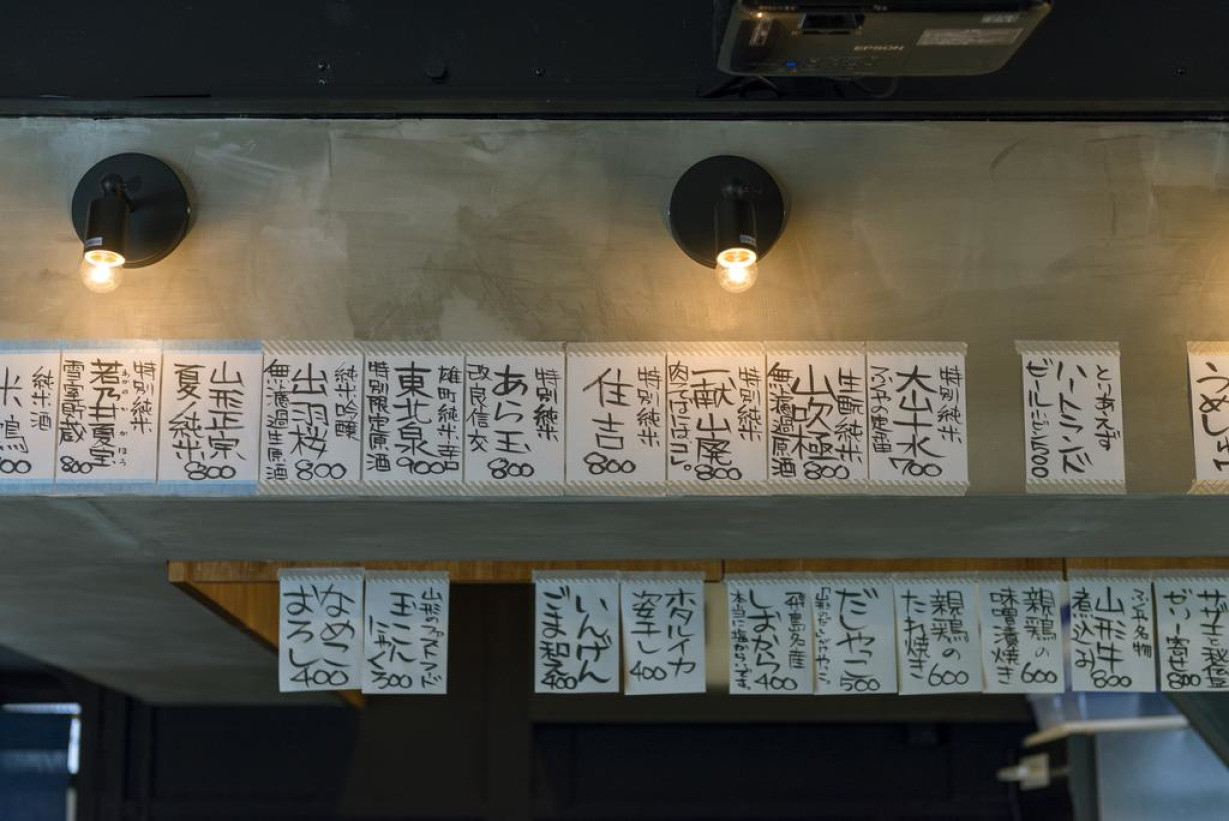 EPSON
うめ
とりあえず
ハートランド
ビール
特別純米
大山十水
700
生酛純米
山吹極
無濾過原酒
800
特別純米
一献山廃
800
特別純米
住吉
800
特別純米
あら玉
改良信交
800
雄町純米辛口
東北泉
特別限定原酒
900
純米吟醸
出羽桜
無濾過生原酒
800
山形正宗
夏ノ純米
800
特別純米
若乃井夏宝
雪室貯蔵
800
純米酒
ササミ
ゼリー寄せ
800
名物
山形牛
煮込み
800
親鶏の
味噌漬焼き
600
親鶏の
たたき焼き
600
だしゃこ
500
飛島名産
しおから
本当に塩からいです。
400
ホタルイカ
姿干し
400
いんげん
ごま和え
400
山形の
玉こん
にゃく
300
なめこ
おろし
400